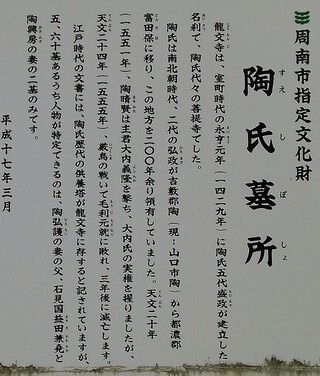 周南市指定文化財
陶氏墓所
すえしぼしょ
龍文寺は、室町時代の永享元年(一四二九年)に陶氏五代盛政が建立した
名刹で、陶氏代々の菩提寺でした。
陶氏は南北朝時代、二代の弘政が吉敷郡陶(現:山口市陶)から都濃郡
富田保に移り、この地方を二〇〇年余り領有していました。天文二十年
(一五五一年)、陶晴賢は主君大内義隆を撃ち、大内氏の実権を握りましたが、
天文二十四年(一五五五年)、厳島の戦いで毛利元就に敗れ、三年後に滅亡します。
江戸時代の文書には「陶氏歴代の供養塔が龍文寺に存すると記されていますが、
五、六十基あるうち人物が特定できるのは、陶弘護の妻の父、石見国益田兼堯と
陶興房の妻の二基のみです。
平成十七年三月